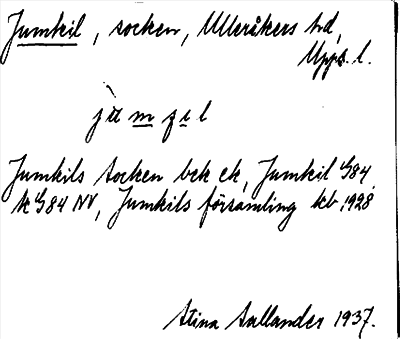 Jumkil, socken, Ulleråkers hd,
Upps. l.
Jumkils socken bck ek, Jumkil G84,
k G84 NV, Jumkils församling kb 1928
Stina Sallander 1937.